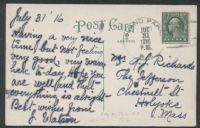 July 31 '16
Post Card
Having a very nice
time but not feeding
very good very warm
here to-day. Hope you
are well and that
everything is alright
Best wishes from
J. Watson
JUL
31
1916
P.M.
Mrs. H. L. Richards
The Jefferson
Chestnut St
Holyoke
Mass